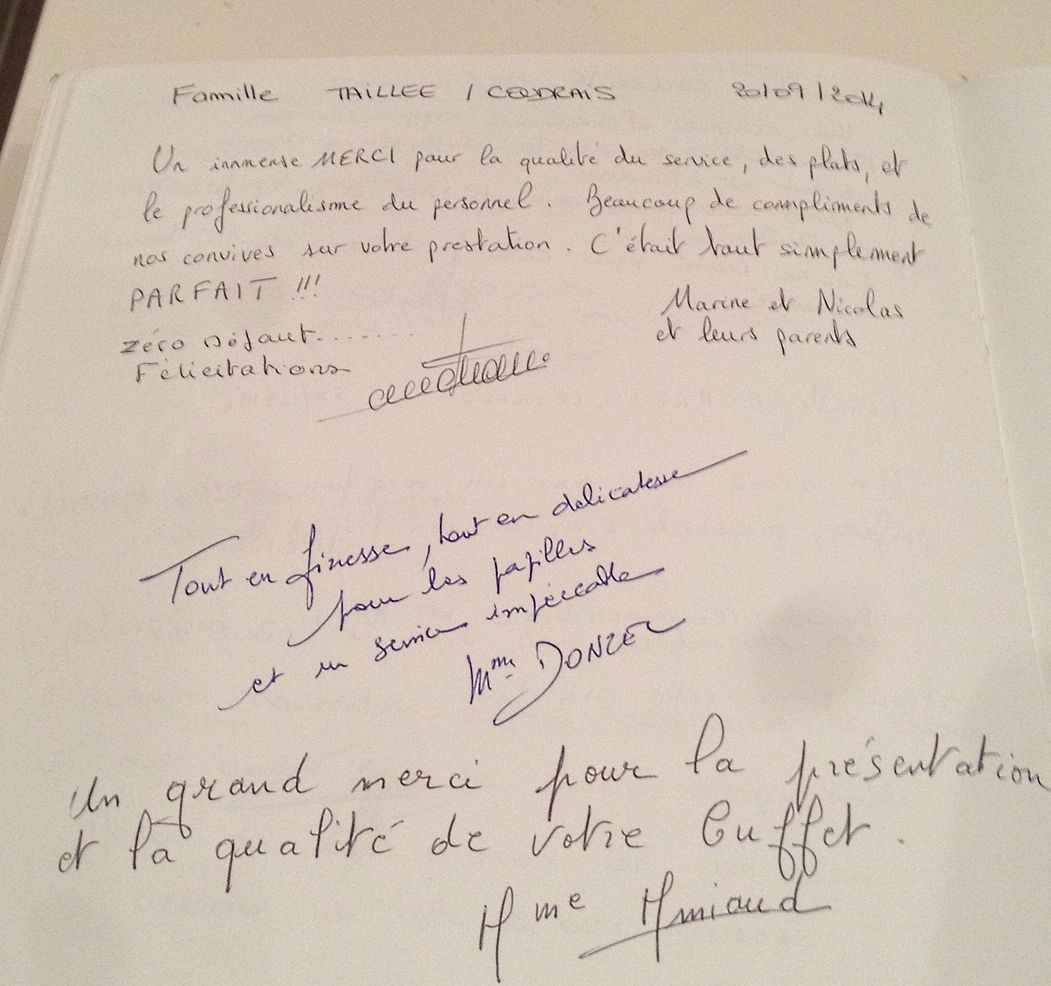 Famille TAILLEE / COUDRAIS 20/09/2014
Un immense MERCI pour la qualité du service, des plats, et
le professionalisme du personnel. Beaucoup de compliments de
nos convives sur votre prestation. C'était tout simplement
PARFAIT !!!
Marine et Nicolas
et leurs parents
zéro Défaut.....
Félicitations
Tout en finesse, tout en delicatesse
pour les papilles
et un service impéccable
Mme DONZEL
Un grand merci pour la présentation
et la qualité de votre buffet.
Mme